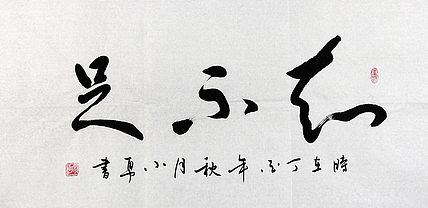 知不足
時在丁亥年秋月小勇書